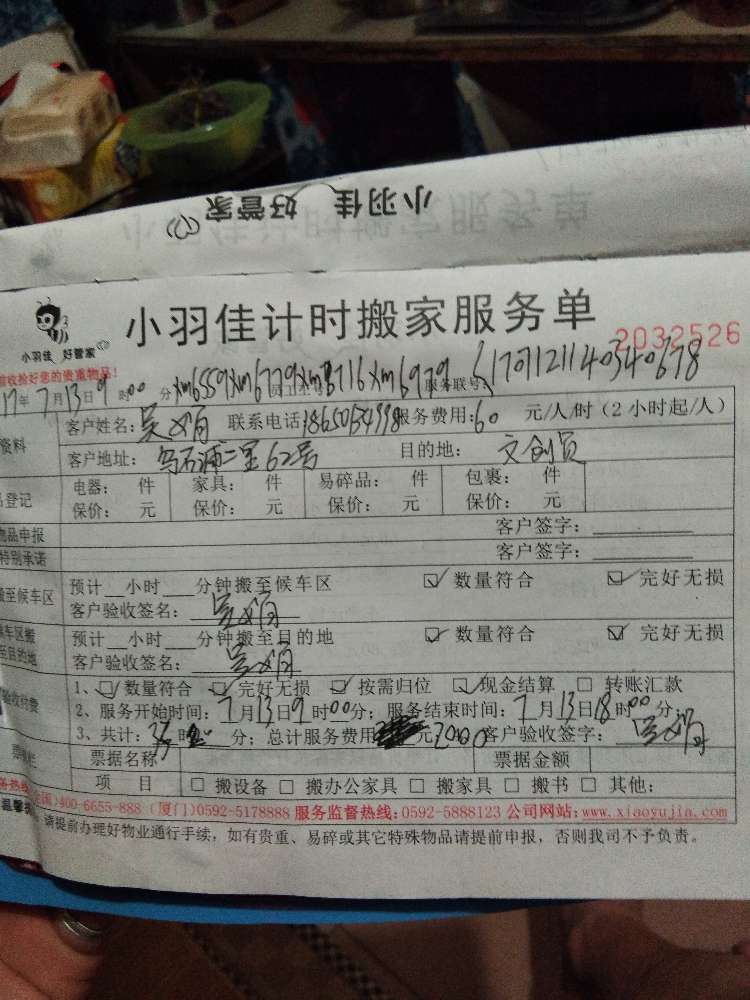 小羽佳 好管家
小羽佳计时搬家服务单
小羽佳 好管家
2032526
验收捡好您的贵重物品!
17年7月13日9时00分 xm6559xm6779xm8716xm6979 服务联号: S17071121140340678
资料 客户姓名: 联系电话 服务费用:60 元/人/时(2小时起/人)
客户地址: 乌石浦二里62号 目的地: 文创园
品登记 电器: 件 家具: 件 易碎品: 件 包裹: 件
保价: 元 保价: 元 保价: 元 保价: 元
物品申报 客户签字:
特别承诺 客户签字:
搬至候车区 预计__小时___分钟搬至候车区 ☑ 数量符合 ☑ 完好无损
客户验收签名:
候车区搬至目的地 预计__小时___分钟搬至目的地 ☑ 数量符合 ☑ 完好无损
客户验收签名:
验收付费 1、☑ 数量符合 ☑ 完好无损 ☑ 按需归位 ☑ 现金结算 □ 转账汇款
2、服务开始时间:7月13日9时00分; 服务结束时间:7月13日18时00分;
3、共计: 时 分; 总计服务费用 元 2000 客户验收签字:
票据名称 票据金额
项 目 □ 搬设备 □ 搬办公家具 □ 搬家具 □ 搬书 □ 其他:
务热线(全国)400-6655-888 (厦门)0592-5178888 服务监督热线:0592-5888123 公司网站:www.xiaoyujia.com
温馨 请提前办理好物业通行手续，如有贵重、易碎或其它特殊物品请提前申报，否则我司不予负责。